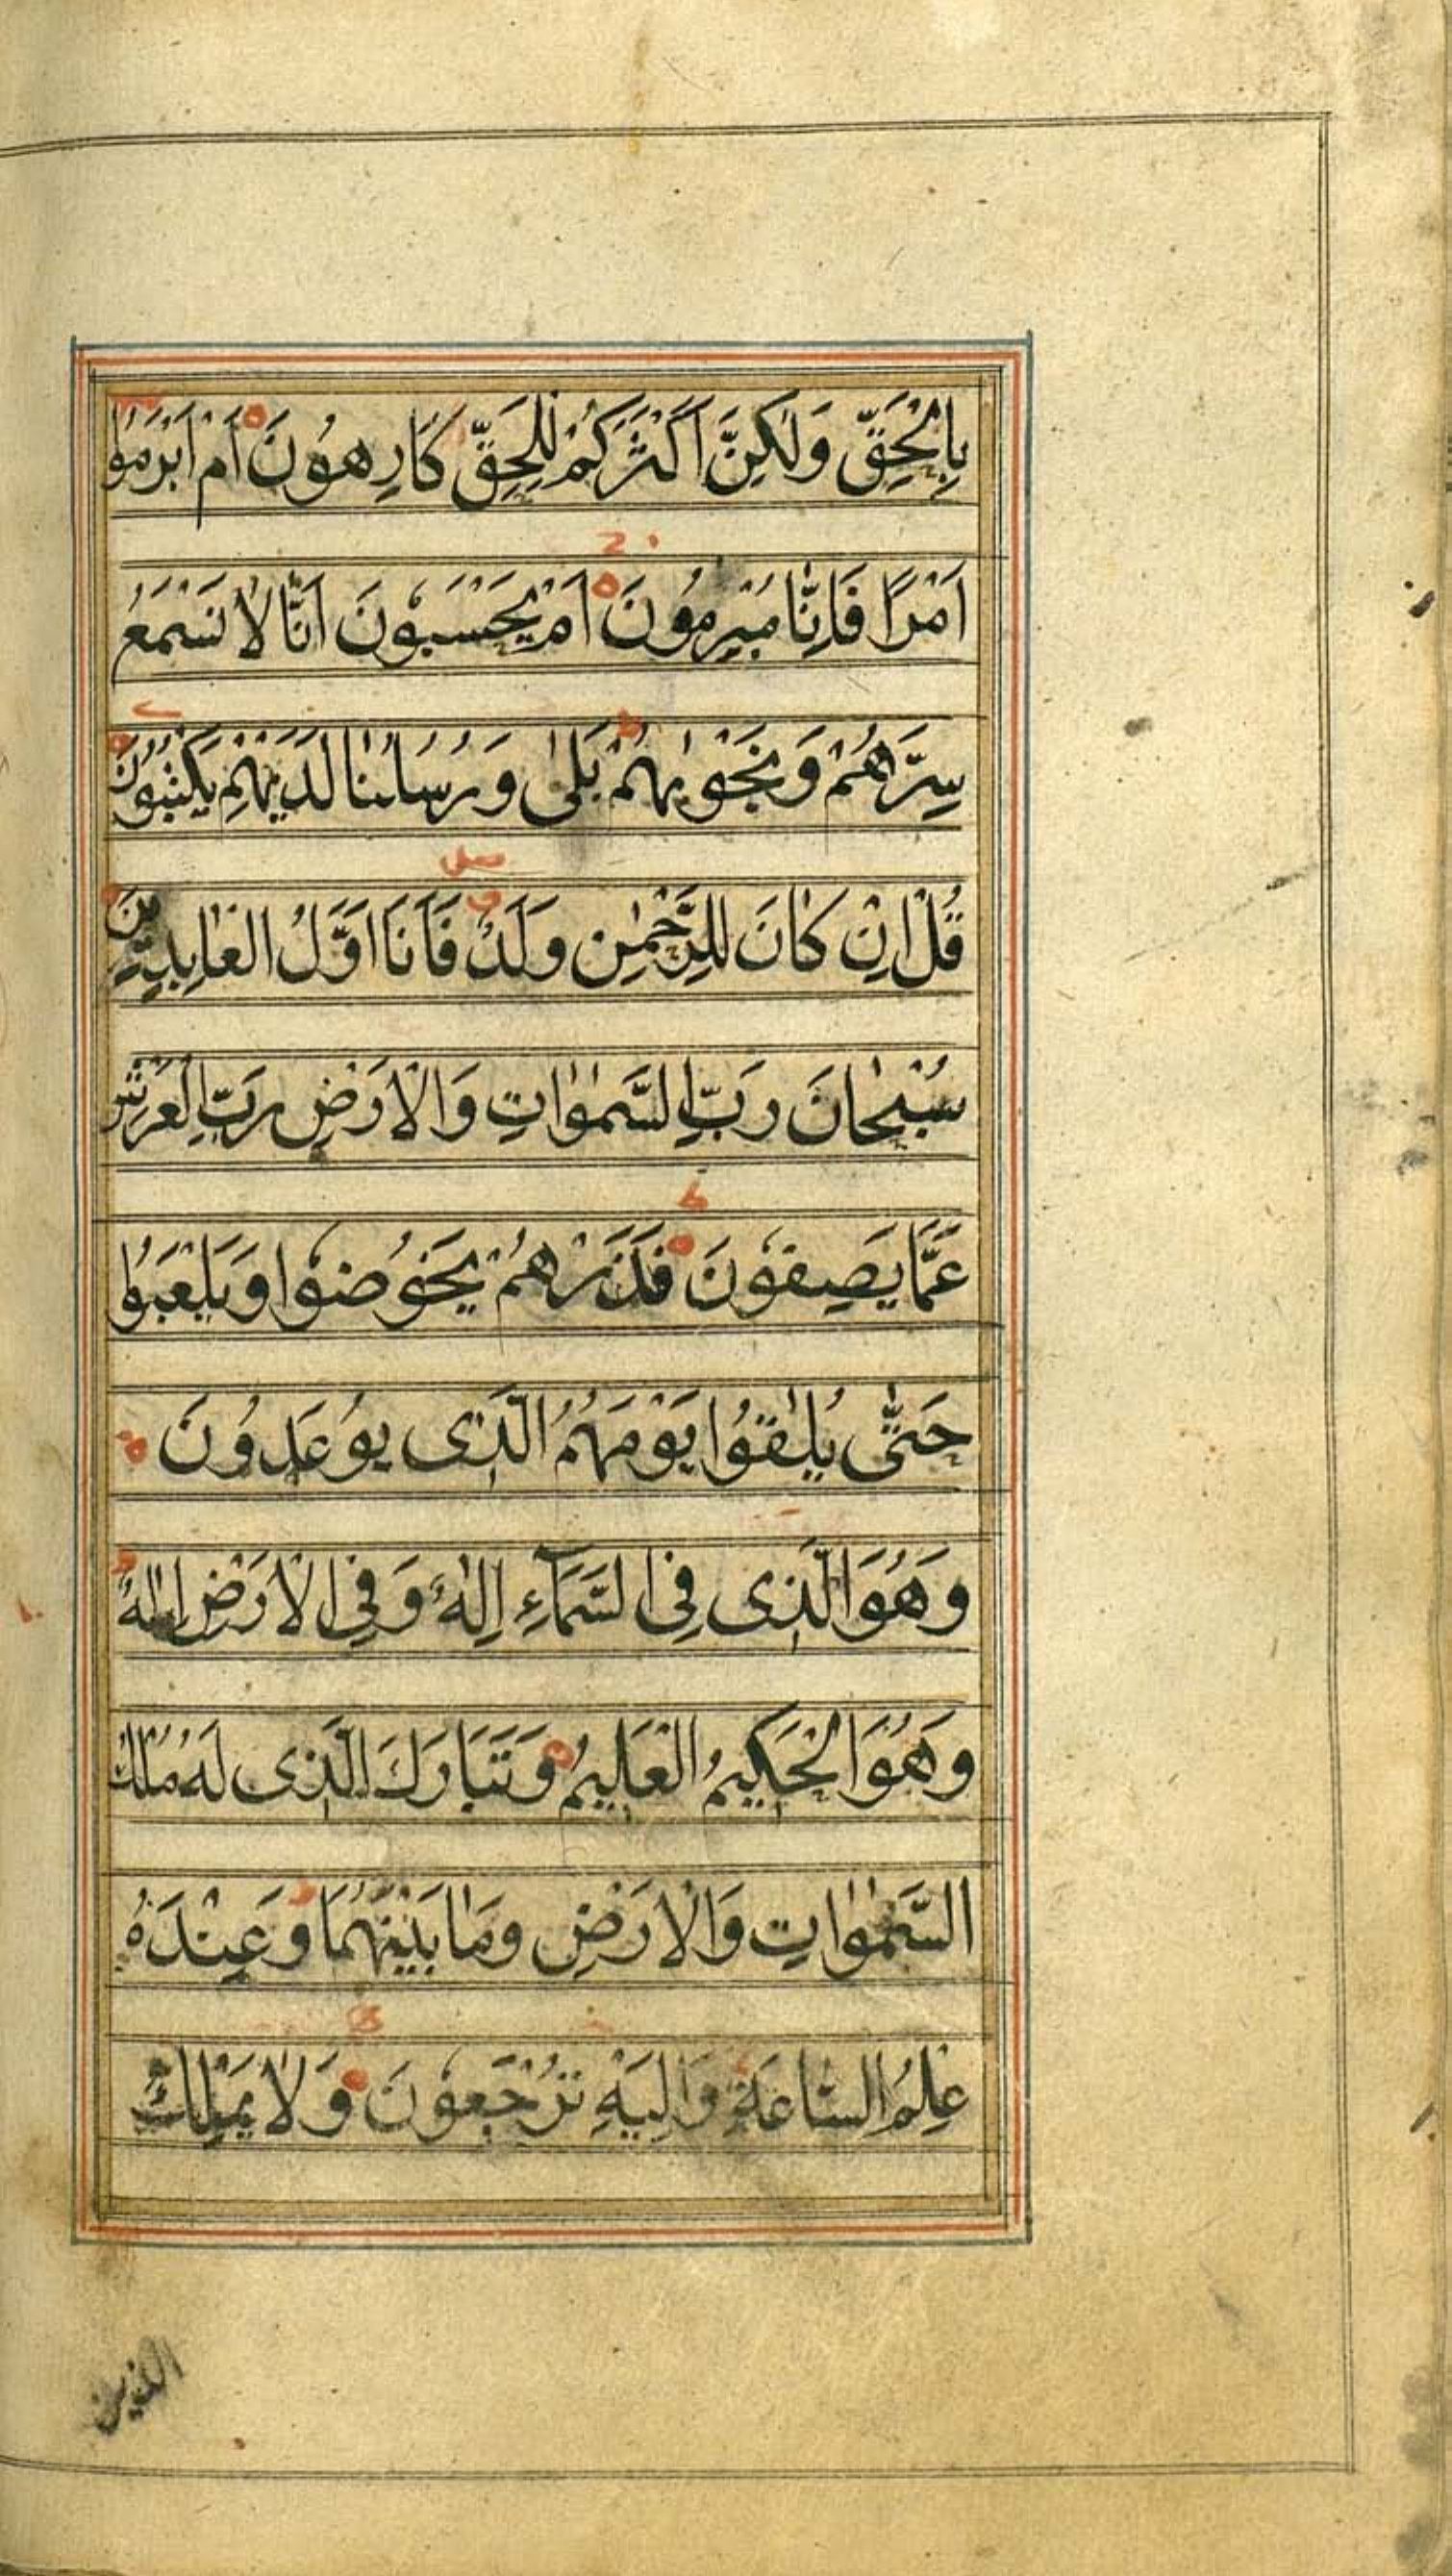 بِالْحَقِّ وَلٰكِنَّ اَكْثَرَكُمْ لِلْحَقِّ كَارِهُونَ اَمْ اَبْرَمُوا
اَمْرًا فَاِنَّا مُبْرِمُونَ اَمْ يَحْسَبُونَ اَنَّا لَا نَسْمَعُ
سِرَّهُمْ وَنَجْوٰيهُمْ بَلٰى وَرُسُلُنَا لَدَيْهِمْ يَكْتُبُونَ
قُلْ اِنْ كَانَ لِلرَّحْمٰنِ وَلَدٌ فَاَنَا اَوَّلُ الْعَابِدِينَ
سُبْحَانَ رَبِّ السَّمٰوَاتِ وَالْاَرْضِ رَبِّ الْعَرْشِ
عَمَّا يَصِفُونَ فَذَرْهُمْ يَخُوضُوا وَيَلْعَبُوا
حَتّٰى يُلٰقُوا يَوْمَهُمُ الَّذِى يُوعَدُونَ
وَهُوَ الَّذِى فِى السَّمَآءِ اِلٰهٌ وَفِى الْاَرْضِ اِلٰهٌ
وَهُوَ الْحَكِيمُ الْعَلِيمُ وَتَبَارَكَ الَّذِى لَهُ مُلْكُ
السَّمٰوَاتِ وَالْاَرْضِ وَمَا بَيْنَهُمَا وَعِنْدَهُ
عِلْمُ السَّاعَةِ وَاِلَيْهِ تُرْجَعُونَ وَلَا يَمْلِكُ
الذين